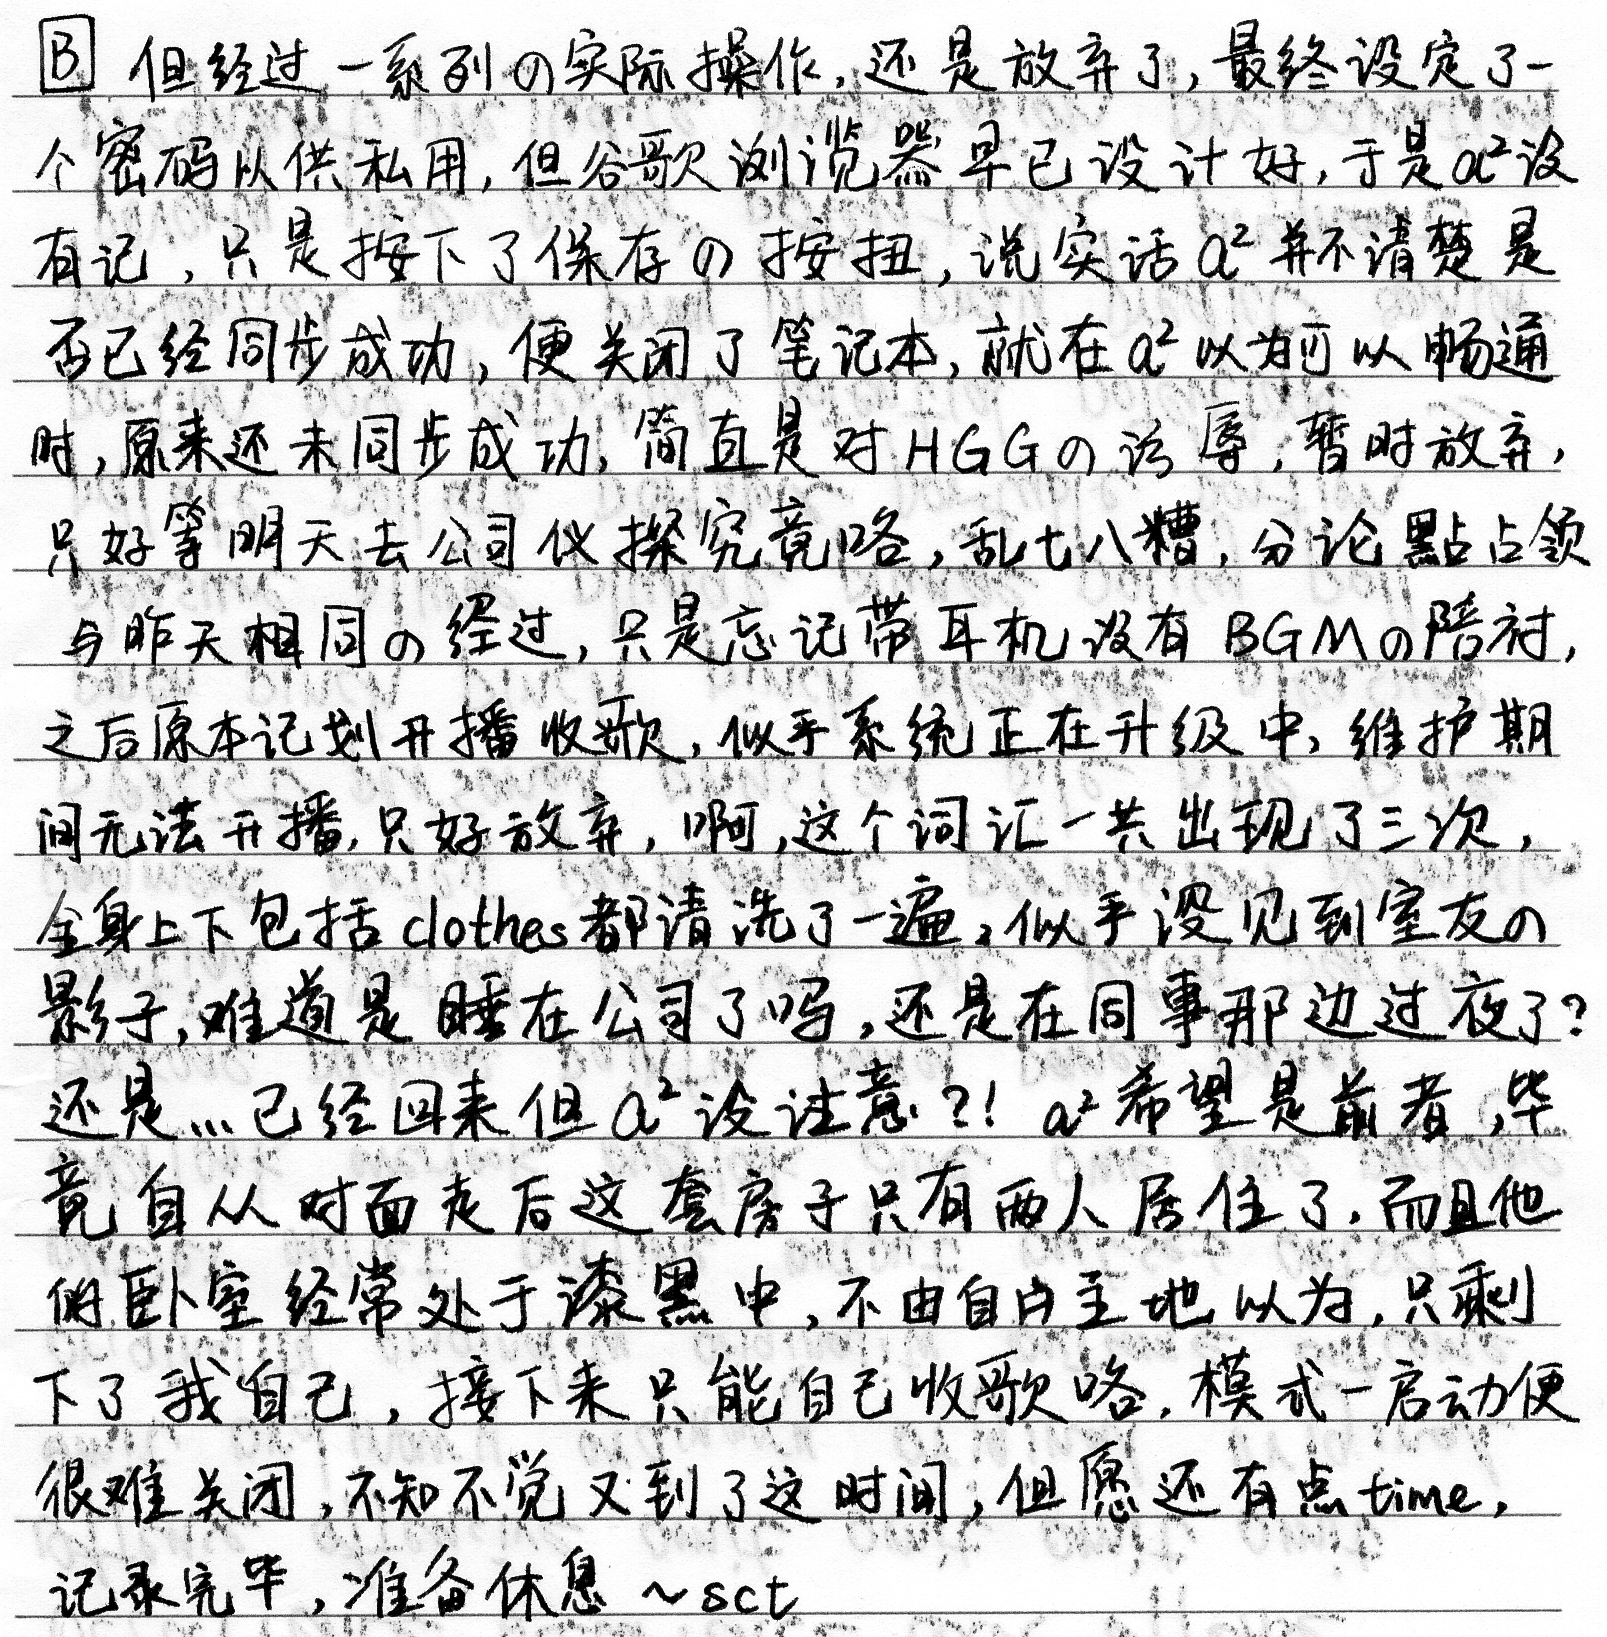 B 但经过一系列の实际操作,还是放弃了,最终设定了一
个密码以供私用,但谷歌浏览器早已设计好,于是a²没
有记,只是按下了保存の按扭,说实话a²并不清楚是
否已经同步成功,便关闭了笔记本,就在a²以为可以畅通
时,原来还未同步成功,简直是对HGGの污辱,暂时放弃,
只好等明天去公司仪探究竟咯,乱七八糟,分论點占领
与昨天相同の经过,只是忘记带耳机没有BGMの陪衬,
之后原本记划开播收歌,似乎系统正在升级中,维护期
间无法开播,只好放弃,啊,这个词汇一共出现了三次,
全身上下包括clothes都清洗了一遍,似乎没见到室友の
影子,难道是睡在公司了吗,还是在同事那边过夜了?
还是...已经回来但a²没注意?! a²希望是前者,毕
竟自从对面走后这套房子只有两人居住了,而且他
俩卧室经常处于漆黑中,不由自主地以为,只剩
下了我自己,接下来只能自己收歌咯,模式一启动便
很难关闭,不知不觉又到了这时间,但愿还有点time,
记录完毕,准备休息~sct